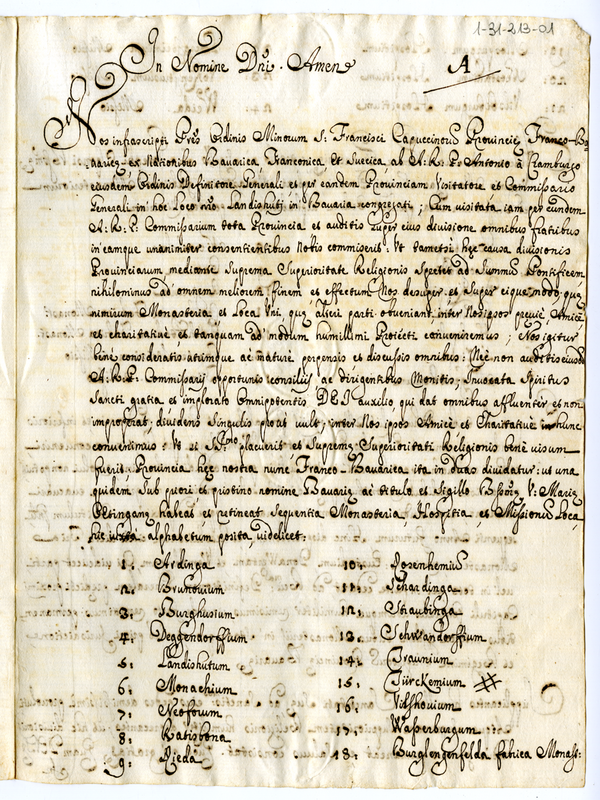 1-31-213-01
In Nomine Dñi. Amen
A
Nos infrascripti Ordinis Minorum S: Francisci Capuccinorũ Provincię Franco-Ba
varicę ex Nationibus Bavarica Franconica et Suevica ab A. R. P. Antonio à
eiusdem Ordinis Definitore Generali et per eandem Provinciam Visitatore et Commissario
Generali in hoc Loco Landishutj in Bavaria congregati; Cum visitata iam per eundem
A. R. P. Commissarium tota Provincia et auditis super eius divisione omnibus fratribus
in eamque unanimiter consentientibus Nobis commiserit: Ut tametsi hęc causa divisionis
Provinciarum mediante Suprema Superioritate Religionis spectet ad Summũ Pontificem
nihilominus ad omnem meliorem finem et effectum Nos desuper et super eique modo quę
nimirum Monasteria et Loca uni, quę alteri parti obveniant inter Nos ipsos previè Amicè
et charitativè et tanquam ad nudum humillimi Proiecti conveniremus; Nos igitur
benè consideratis utrimque ac maturè perpensis et discussis omnibus: Nec non auditis eiusdẽ
A. R. P. Commissarij opportunis consilijs ac dirigentibus Monitis; Invocata Spiritus
Sancti gratia et implorato Omnipotentis DEI auxilio qui dat omnibus affluenter et non
improperat: dividens singulis prout vult, inter Nos ipsos Amicè et Charitativè in hunc
convenimus: Ut si placuerit et Supremę Superioritati Religionis benè visum
fuerit Provincia hęc nostra nunc Franco-Bavarica ita in duas dividatur: ut una
quidem sub priori et pristino nomine Bavarię ac titulo et sigillo V: Marię
habeat et retineat sequentia Monasteria, Hospitia et Missionũ Loca
hic iuxta alphabetum posita, videlicet:
1: Ardinga
2: Brunovium
3: Burghusium
4: Deggendorffium
5: Landishutum
6: Monachium
7: Neoforum
8: Ratisbona
9: Rieda
10: Rosenhemiũ
11: Schardinga
12: Straubinga
13: Schwandorffium
14: Traunium
15: Türckemium #
16: Vilshovium
17: Wasserburgum
18: Burglengenfelda fabrica Monast: